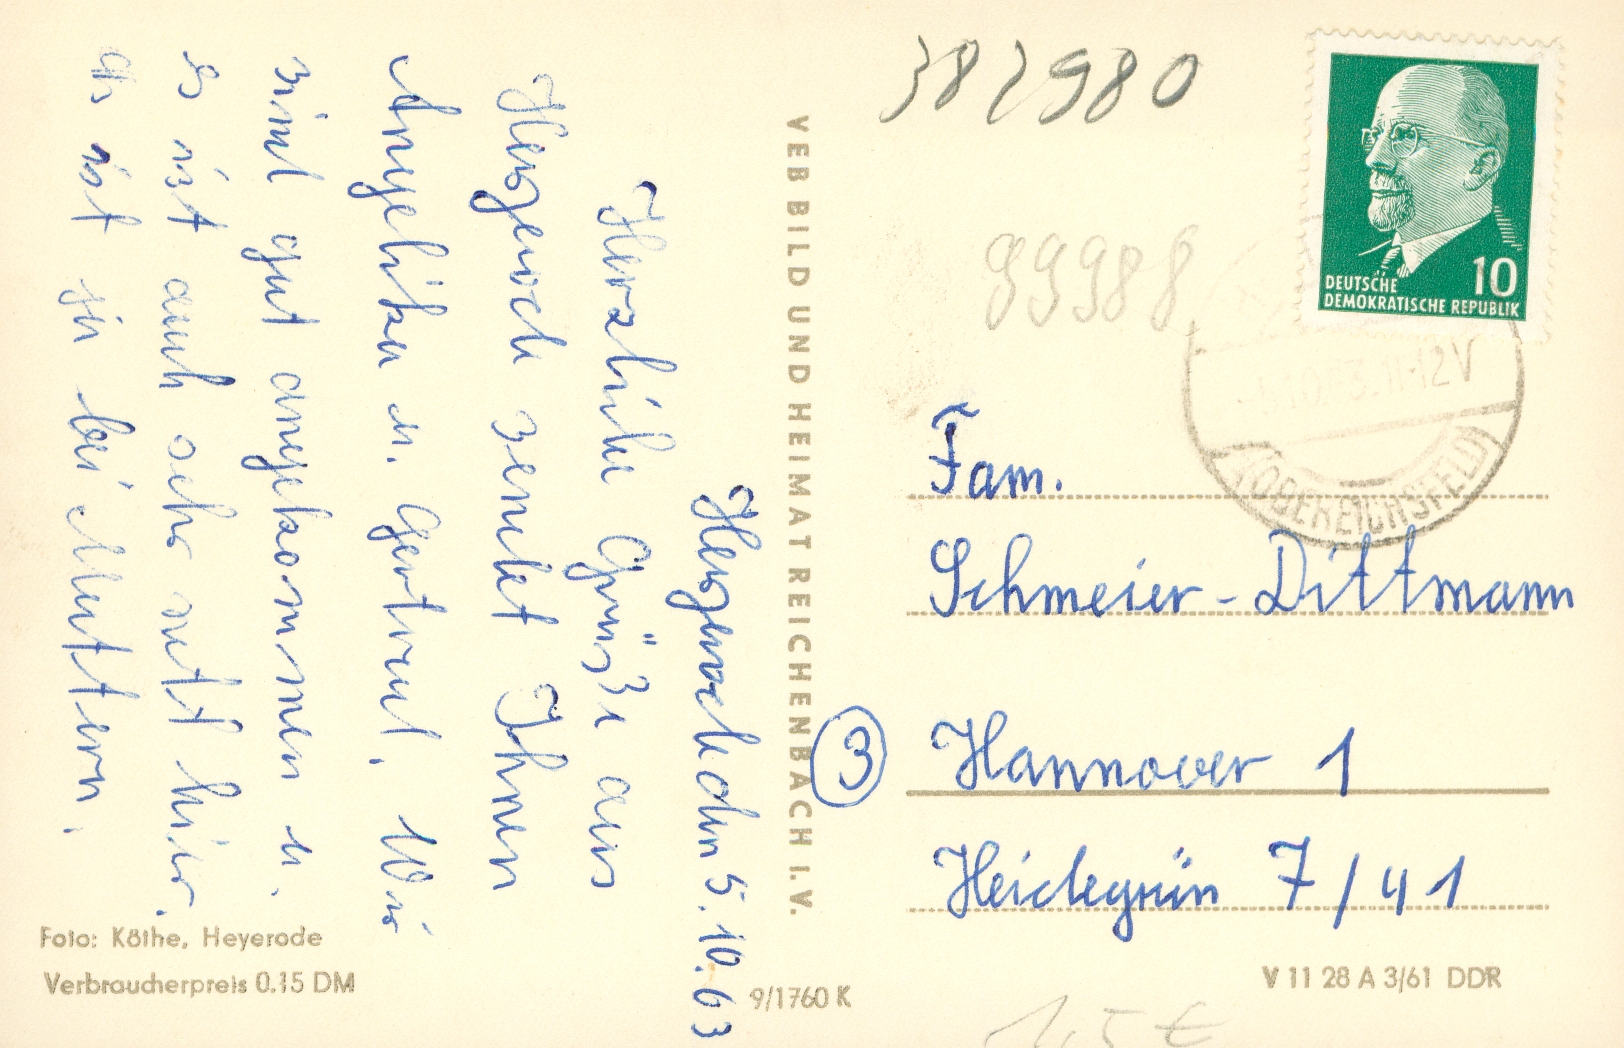 Heyerode den 5.10.63
Herzliche Grüße aus
Heyerode sendet Ihnen
Angelika u. Gertrud. Wir
sind gut angekommen u.
es ist auch sehr nett hier.
ist sie bei Muttern.
VEB BILD UND HEIMAT REICHENBACH I. V.
Foto: Köthe, Heyerode
Verbraucherpreis 0.15 DM
9/1760 K
382980
99988
DEUTSCHE
DEMOKRATISCHE REPUBLIK
10
11-12V
(OBEREICHSFELD)
Fam.
Schmeier-Dittmann
3
Hannover 1
Heidegrün 7/41
V 11 28 A 3/61 DDR
1,5 €